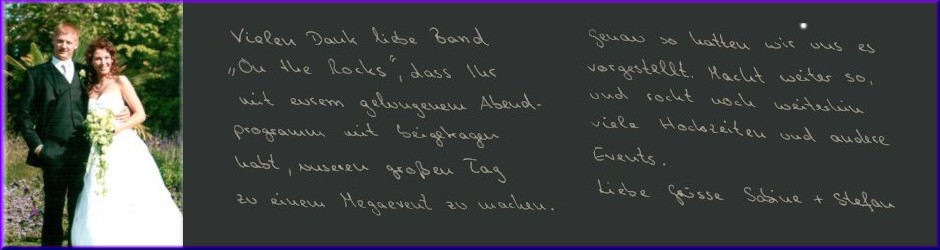 Vielen Dank liebe Band
„On the Rocks“, dass Ihr
mit eurem gelungenem Abend-
programm mit beigetragen
habt, unseren großen Tag
zu einem Megaevent zu machen.
Genau so hatten wir uns es
vorgestellt. Macht weiter so,
und rockt noch weiterhin
viele Hochzeiten und andere
Events.
Liebe Grüsse Sabine + Stefan